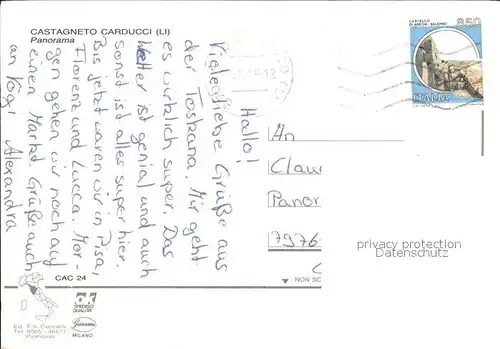 CASTAGNETO CARDUCCI (LI)
Panorama
Hallo!
Viele liebe Grüße aus
der Toskana. Mir geht
es wirklich super. Das
Wetter ist genial und auch
sonst ist alles super hier.
Bis jetzt waren wir in Pisa,
Florenz und Lucca. Mor-
gen gehen wir noch auf
einen Markt. Grüße auch
an Kögi
Alexandra
CASTELLO
DI ARECHI - SALERNO
850
ITALIA
An
Clau
Panor
7976
privacy protection
Datenschutz
CAC 24
NON SC
MILANO